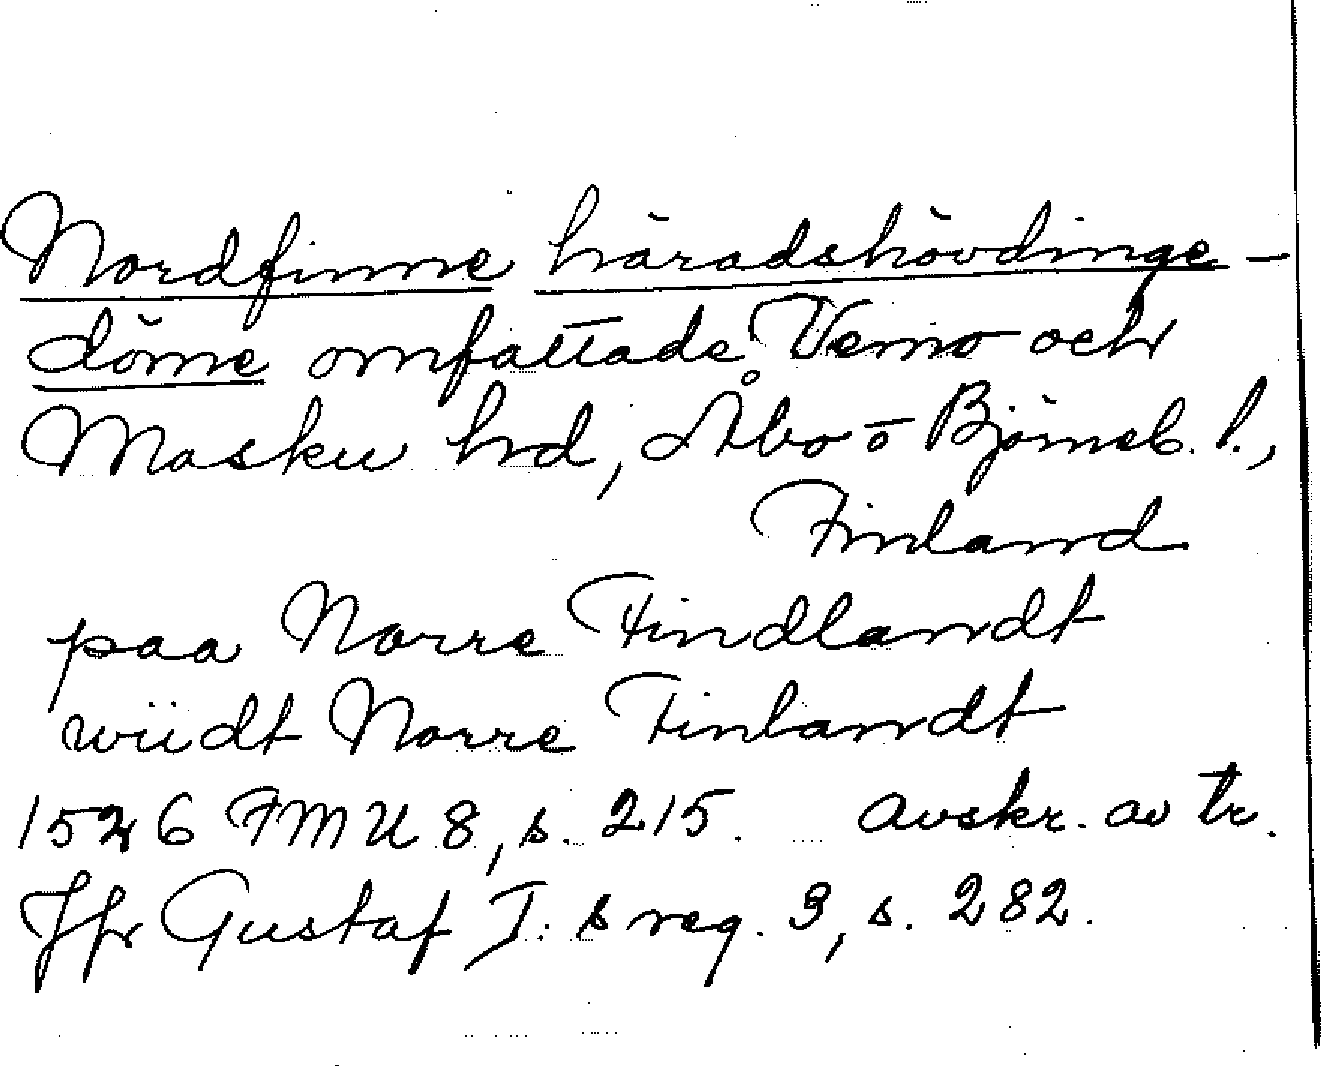 Nordfinne häradshövdinge-
döme omfattade Vemo och
Masku hrd, Åbo o Björneb. l.,
Finland
paa Norre Findlandt
wiidt Norre Finlandt
1526 FMU 8, s. 215. avskr. av tr.
Jfr Gustaf I:s reg. 3, s. 282.